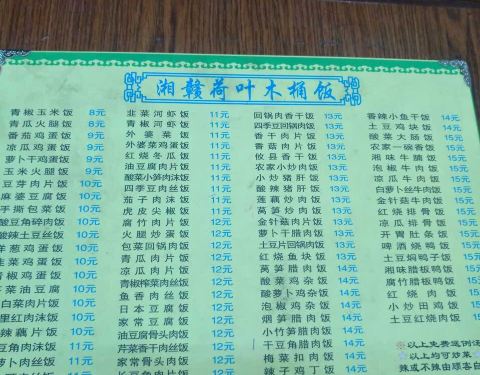 湘赣荷叶木桶饭
青椒玉米饭 8元
青瓜火腿饭 8元
番茄鸡蛋饭 9元
凉瓜鸡蛋饭 9元
萝卜干鸡蛋饭 9元
玉米火腿饭 9元
豆芽肉片饭 10元
麻婆豆腐饭 10元
手撕包菜饭 10元
酸豆角碎肉饭 10元
酸辣土豆丝饭 10元
洋葱鸡蛋饭 10元
韭菜鸡蛋饭 10元
青椒鸡蛋饭 10元
芥菜油豆腐 10元
白菜肉片饭 10元
酸辣藕片饭 10元
豆角肉沫饭 11元
萝卜肉丝饭 11元
肉片饭 11元
韭菜河虾饭 11元
青椒河虾饭 11元
外婆菜饭 11元
外婆菜鸡蛋饭 11元
红烧冬瓜饭 11元
油豆腐肉片饭 11元
酸菜小笋肉沫饭 11元
四季豆肉丝饭 11元
茄子肉沫饭 11元
虎皮尖椒饭 11元
腐竹肉片饭 11元
火腿炒蛋饭 12元
包菜回锅肉饭 12元
青瓜肉片饭 12元
凉瓜肉片饭 12元
青椒榨菜肉丝饭 12元
鱼香肉丝饭 12元
日本豆腐饭 12元
家常豆腐饭 12元
油豆腐骨头肉饭 12元
芹菜香干肉丝饭 12元
家常骨头肉饭 12元
回锅肉香干饭 13元
四季豆回锅肉饭 13元
香干肉片饭 13元
香菇肉片饭 13元
攸县香干饭 13元
农家小炒肉饭 13元
小炒猪肝饭 13元
酸辣猪肝饭 13元
莲藕炒肉饭 13元
莴笋炒肉饭 13元
金针菇肉片饭 13元
萝卜干腊肉饭 13元
土豆片回锅肉饭 13元
红烧鱼块饭 13元
莴笋腊肉饭 14元
酸菜鸡杂饭 14元
酸萝卜鸡杂饭 14元
泡椒鸡杂饭 14元
烟笋腊肉饭 14元
小竹笋腊肉饭 14元
干豆角腊肉饭 14元
梅菜扣肉饭 14元
辣子鸡丁饭 14元
香辣小鱼干饭 14元
土豆鸡块饭 14元
酸菜大肠饭 15元
农家一碗香饭 15元
湘味牛腩饭 15元
泡椒牛肉饭 15元
凉瓜牛肉饭 15元
白萝卜丝牛肉饭 15元
金针菇牛肉饭 15元
红烧排骨饭 15元
开胃肚条饭 15元
啤酒烧鸭饭 15元
土豆焖鸭子饭 15元
湘味腊板鸭饭 15元
腐竹腊板鸭饭 15元
红烧肉饭 15元
小炒田鸡饭 15元
土豆红烧肉饭 15元
※以上免费送例汤
以上均可炒菜
辣或不辣由顾客自